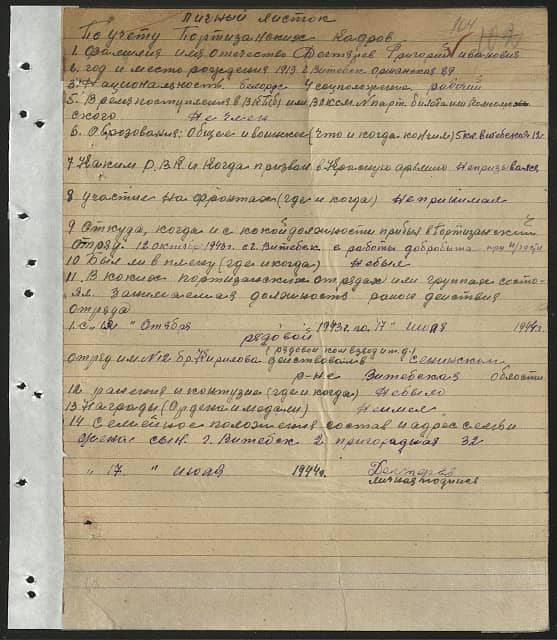 Личный листок
По учету Партизанских Кадров. 104
1. Фамилия имя отечество Дегтярёв Григорий иванович
2. год и место рождения 1913 г. Витебск Оршанская 89
3. Национальность белорус 4 соцположение рабочий
5. Время поступления в ВКПб или ВЛКСМ N парт. билета или комсомоль
ского Не член
6. Образования: Общее и военное (что и когда кончил) 5 кл. Витебская 12 г.
7 Каким Р.В.К и Когда призван в Красную армию Непризывался
8 участие на фронтах (где и когда) Непринимал
9 Откуда, когда и с какой должности прибыл в Партизанский
Отряд. 12 октября 1943г. с г. Витебск с работы
10 Был ли в плену (где и когда) Небыл
11. В каких партизанских отрядах или группах состо-
ял. Занимаемая должность район действия
отряда
1. с " 12 " Отября 1943г. по " 17 " июля 1944г.
рядовой
(рядовой ком взвод и т.д.)
отряд им. N12 бр. Кирилова действовавший Сенинском
р-не Витебская области
12 ранения и контузие (где и когда) Небыло
13 Награды (Ордена и медали) Неимел
14 Семейное положения состав и адрес семьи
жена сын. г. Витебск 2 пригородная 32
" 17 " июля 1944г. Дегтярев
личная подпись